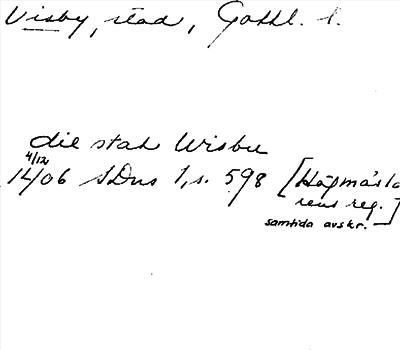 Visby, stad, Gothl. l.
die stat Wisbu
4/12
14/06 SDns 1, s. 598 [Högmästa
rens reg.]
samtida avskr.